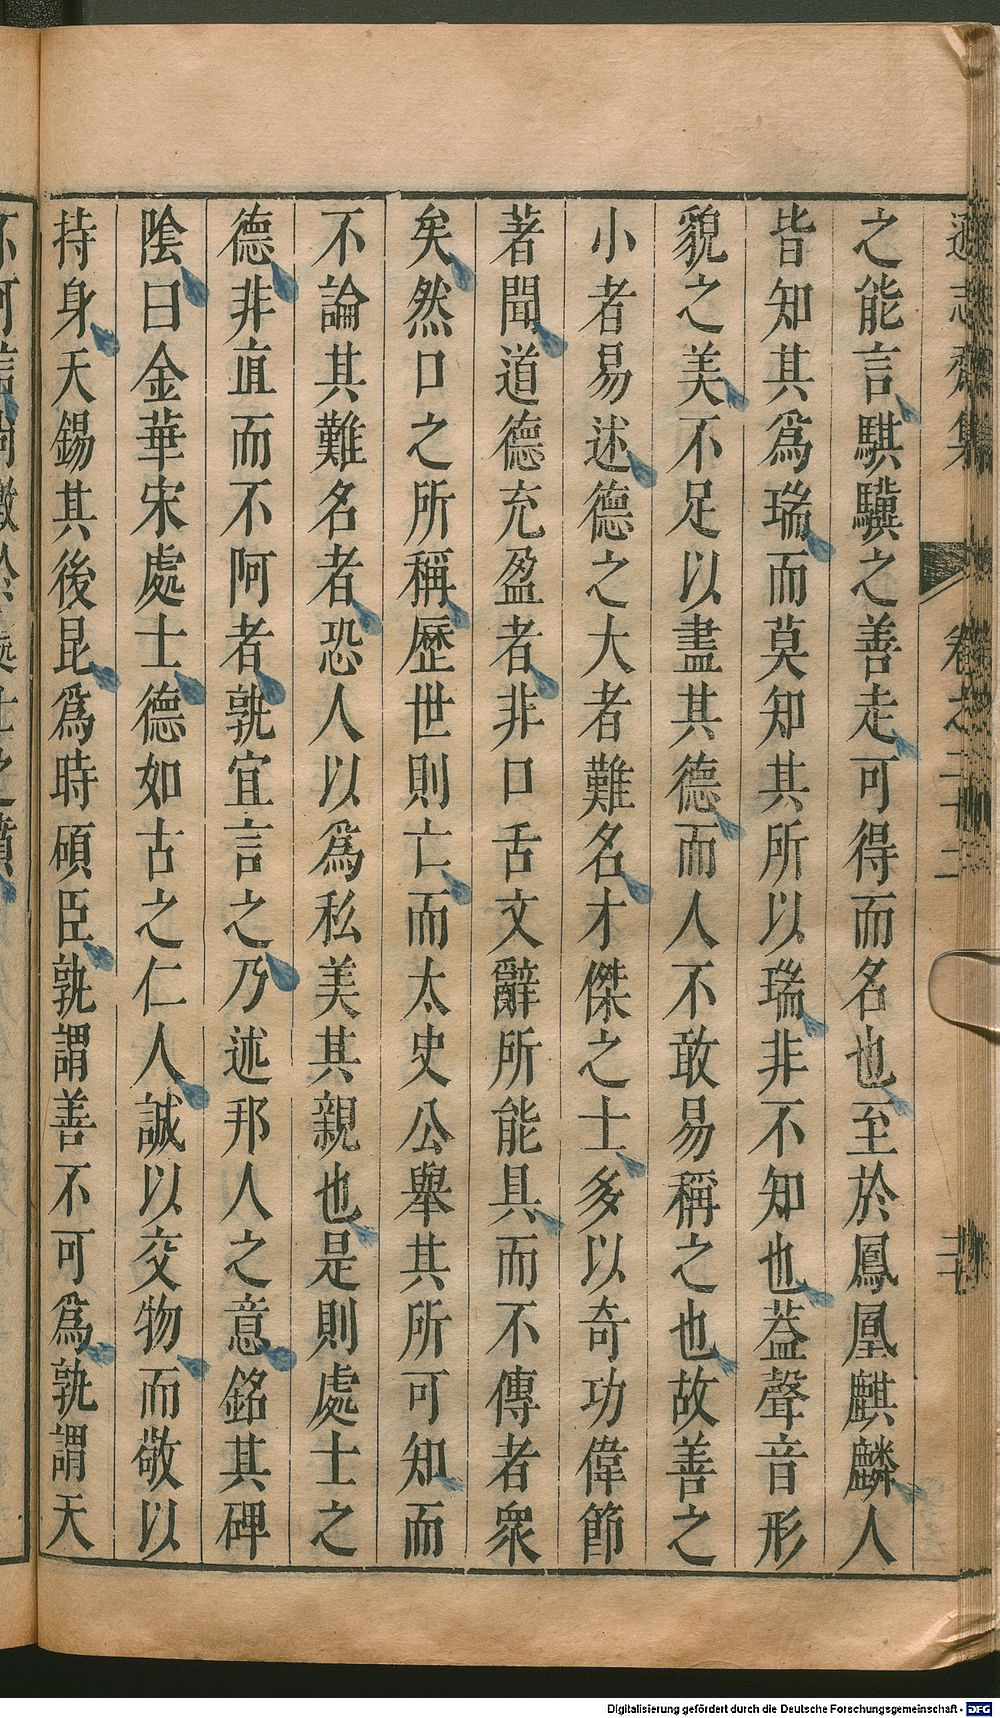 遜志齋集 卷之二十二 三十
之能言騏驥之善走可得而名也至於鳳凰麒麟人
皆知其爲瑞而莫知其所以瑞非不知也葢聲音形
貌之美不足以盡其德而人不敢易稱之也故善之
小者易述德之大者難名才傑之士多以奇功偉節
著聞道德充盈者非口舌文辭所能具而不傳者衆
矣然口之所稱歷世則亡而太史公舉其所可知而
不論其難名者恐人以爲私美其親也是則處士之
德非直而不阿者孰宜言之乃述邦人之意銘其碑
陰曰金華宋處士德如古之仁人誠以交物而敬以
持身天錫其後昆爲時碩臣孰謂善不可爲孰謂天
Digitalisierung gefördert durch die Deutsche Forschungsgemeinschaft - DFG